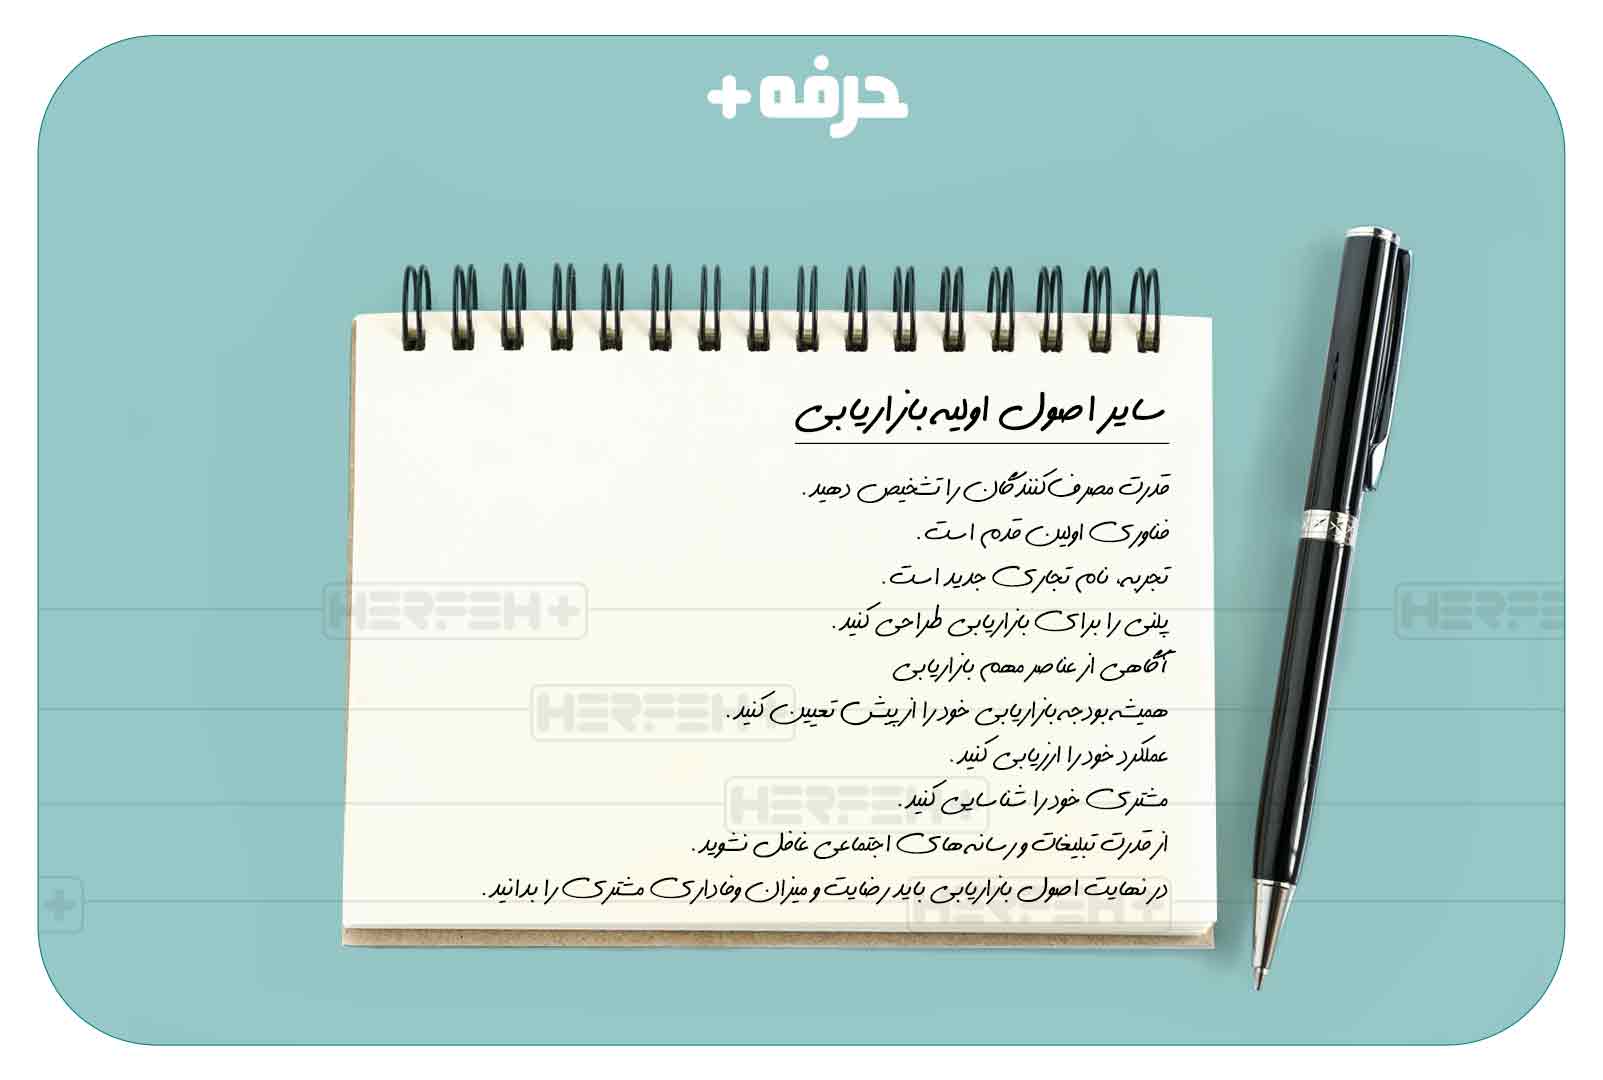 حرفه+
سایر اصول اولیه بازاریابی
قدرت مصرف‌کنندگان را تشخیص دهید.
فناوری اولین قدم است.
تجربه، نام تجاری جدید است.
پلنی را برای بازاریابی طراحی کنید.
آگاهی از عناصر مهم بازاریابی
همیشه بودجه بازاریابی خود را از پیش تعیین کنید.
عملکرد خود را ارزیابی کنید.
مشتری خود را شناسایی کنید.
از قدرت تبلیغات و رسانه‌های اجتماعی غافل نشوید.
در نهایت اصول بازاریابی باید رضایت و میزان وفاداری مشتری را بدانید.
HERFEH+
HERFEH
HERFEH+
HERFEH+
HERFEH+
+